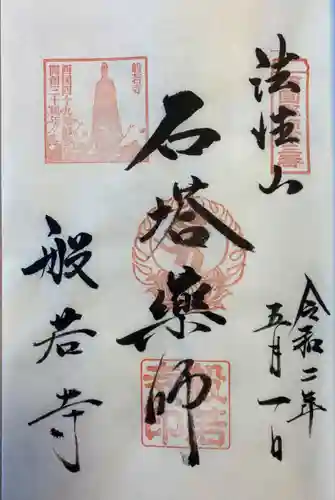 法性山
石塔薬師
般若寺
令和二年
五月一日
般若寺印